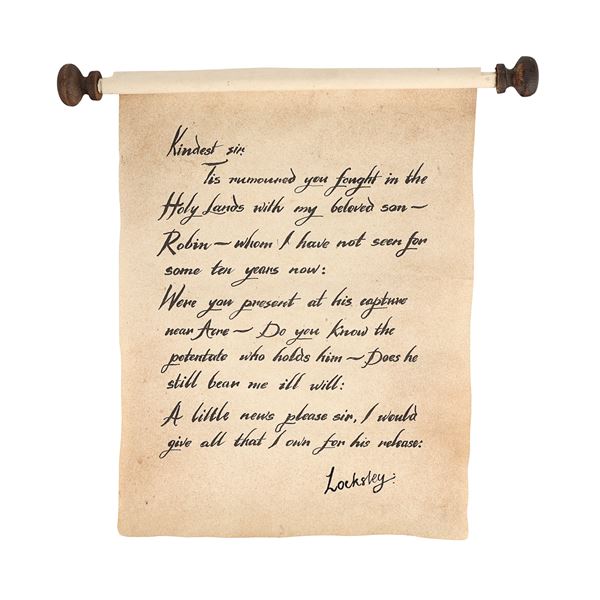 Kindest sir:
Tis rumoured you fought in the
Holy Lands with my beloved son –
Robin – whom I have not seen for
some ten years now:
Were you present at his capture
near Acre – Do you know the
potentate who holds him – Does he
still bear me ill will:
A little news please sir, I would
give all that I own for his release:
Locksley: